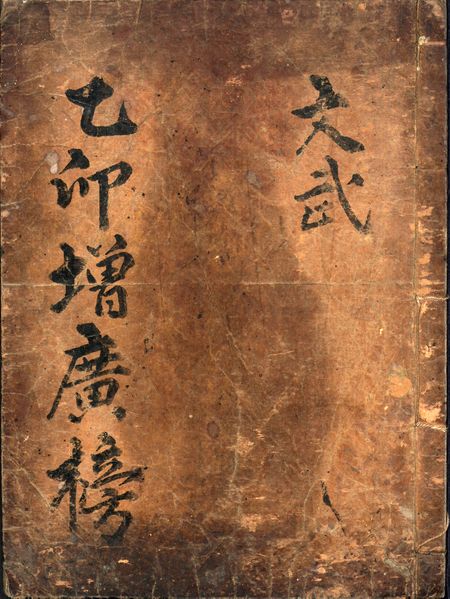 文武
乙卯增廣榜